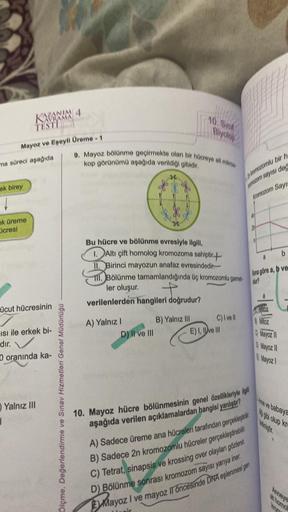 KAZANIM
KAVRAMA 4
TESTİ
10. Sınıf
Biyoloji
Mayoz ve Eşeyli Üreme - 1
ma süreci aşağıda
ek birey
ek üreme
ücresi
9. Mayoz bölünme geçirmekte olan bir hücreye ait mikros-
kop görünümü aşağıda verildiği gibidir.
Bu hücre ve bölünme evresiyle ilgili,
I. Altı çift homolog kromozoma sahiptir.
II. Birinci mayozun anafaz evresindedir.
III. Bölünme tamamlandığında üç kromozomlu game-
ler oluşur.
verilenlerden hangileri doğrudur?
A) Yalnız I
B) Yalnız III
C) I ve II
D) II ve III
E) I, II ve III
ücut hücresinin
ısı ile erkek bi-
dır.
0 oranında ka-
) Yalnız III
Ölçme, Değerlendirme ve Sınav Hizmetleri Genel Müdürlüğü
10. Mayoz hücre bölünmesinin genel özellikleriyle ilgili
aşağıda verilen açıklamalardan hangisi yanlıştır?
A) Sadece üreme ana hücreleri tarafından gerçekleştirilir.
B) Sadece 2n kromozomlu hücreler gerçekleştirebilir.
C) Tetrat, sinapsis ve krossing over olayları görülür.
D) Bölünme sonrası kromozom sayısı yarıya iner.
E) Mayoz I ve mayoz II öncesinde DNA eşlenmesi
kromozomlu bir h
kromozom sayısı değ
Kromozom Sayı
a b
Buna göre a, b ve
dır?
a
Mitoz
B) Mitoz
C) Mayoz II
D) Mayoz II
E) Mayoz I
anne ve babaya
gibi olup